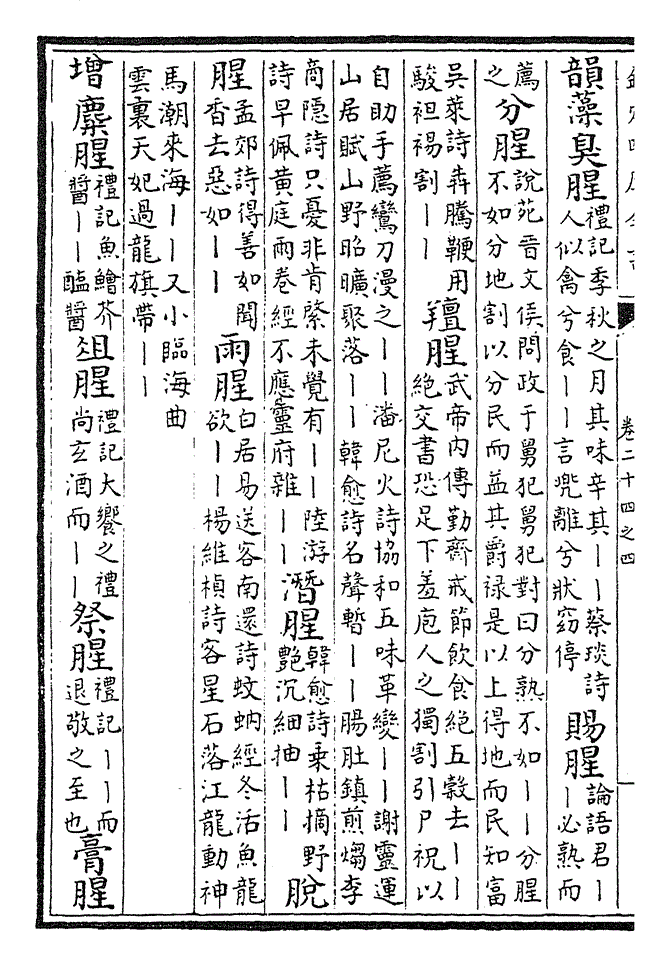 卷二十四之四
韻藻臭腥禮記季秋之月其味辛其丨丨蔡琰詩人似禽兮食丨丨言兜離兮狀窈停賜腥論語君丨丨必熟而
薦之分腥說苑晉文侯問政于舅犯舅犯對曰分熟不如丨丨分腥不如分地割以分民而益其爵禄是以上得地而民知富
吳萊詩犇騰鞭用駿袒裼割丨丨羶腥武帝内傳勤齋戒節飲食絶五穀去丨丨絶交書恐足下羞庖人之獨割引尸祝以
自助手薦鸞刀漫之丨丨潘尼火詩協和五味革變丨丨謝靈運山居賦山野昭曠聚落丨丨韓愈詩名聲暫丨丨腸肚鎮煎熓李
商隱詩只憂非肯綮未覺有丨丨陸游詩早佩黄庭兩卷經不應靈府雜丨丨潛腥韓愈詩乗枯摘野艷沉細抽丨丨脫
腥孟郊詩得善如聞香去惡如丨丨雨腥白居易送客南還詩蚊蚋經冬活魚龍欲丨丨楊維楨詩客星石落江龍動神
馬潮來海丨丨又小臨海曲雲裏天妃過龍旗帶丨丨
增麋腥禮記魚鱠芥醬丨丨醢醬俎腥禮記大饗之禮尚玄酒而丨丨祭腥禮記丨丨而退敬之至也膏腥